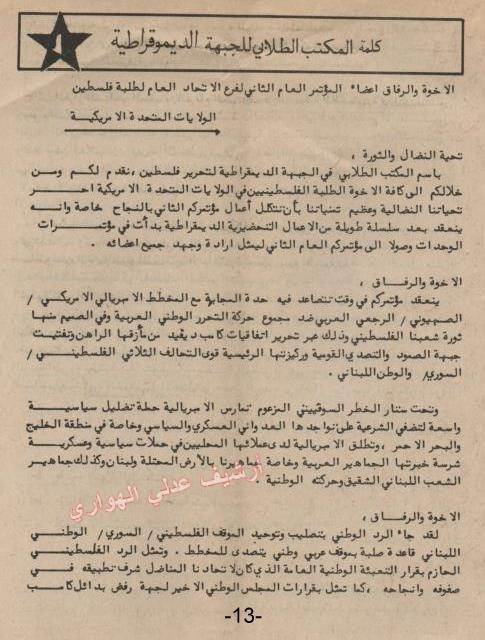 كلمة المكتب الطلابي للجبهة الديموقراطية
الاخوة والرفاق اعضاء المؤتمر العام الثاني لفرع الاتحاد العام لطلبة فلسطين
الولايات المتحدة الامريكية
تحية النضال والثورة ،
باسم المكتب الطلابي في الجبهة الديمقراطية لتحرير فلسطين ، نقدم لكم ومن
خلالكم الى كافة الاخوة الطلبة الفلسطينيين في الولايات المتحدة الامريكية احر
تحياتنا النضالية وعظيم تمنياتنا بأن تتكلل أعمال مؤتمركم الثاني بالنجاح خاصة وانه
ينعقد بعد سلسلة طويلة من الاعمال التحضيرية الديمقراطية بدأت في مؤتمرات
الوحدات وصولا الى مؤتمركم العام الثاني ليمثل ارادة وجهد جميع اعضائه .
الاخوة والرفاق ،
ينعقد مؤتمركم في وقت تتصاعد فيه حدة المجابهة مع المخطط الامبريالي الامريكي /
الصهيوني / الرجعي العربي ضد مجموع حركة التحرر الوطني العربية وفي الصميم منها
ثورة شعبنا الفلسطيني وذلك عبر تحرير اتفاقيات كامب ديفيد من مأزقها الراهن وتفتيت
جبهة الصمود والتصدي القومية وركيزتها الرئيسية قوى التحالف الثلاثي الفلسطيني /
السوري / والوطن اللبناني .
وتحت ستار الخطر السوفييتي المزعوم تمارس الامبريالية حملة تضليل سياسية
واسعة لتضفي الشرعية على تواجدها العدواني العسكري والسياسي وخاصة في منطقة الخليج
والبحر الاحمر ، وتطلق الامبريالية لدى عملائها المحليين في حملات سياسية وعسكرية
شرسة خبرتها الجماهير العربية وخاصة جماهيرنا بالأرض المحتلة ولبنان وكذلك جماهير
الشعب اللبناني الشقيق وحركته الوطنية
أرشيف عدلي الهواري
الاخوة والرفاق ،
لقد جاء الرد الوطني بتصليب وتوحيد الموقف الفلسطيني / السوري / الوطني
اللبناني قاعدة صلبة بموقف عربي وطني يتصدى للمخطط . وتمثل الرد الفلسطيني
الحازم بقرار التعبئة الوطنية العامة الذي كان لاتحادنا المناضل شرف تطبيقه في
صفوفه وانجاحه ، كما تمثل بقرارات المجلس الوطني الاخير لجبهة رفض بدائل كامب
-13-